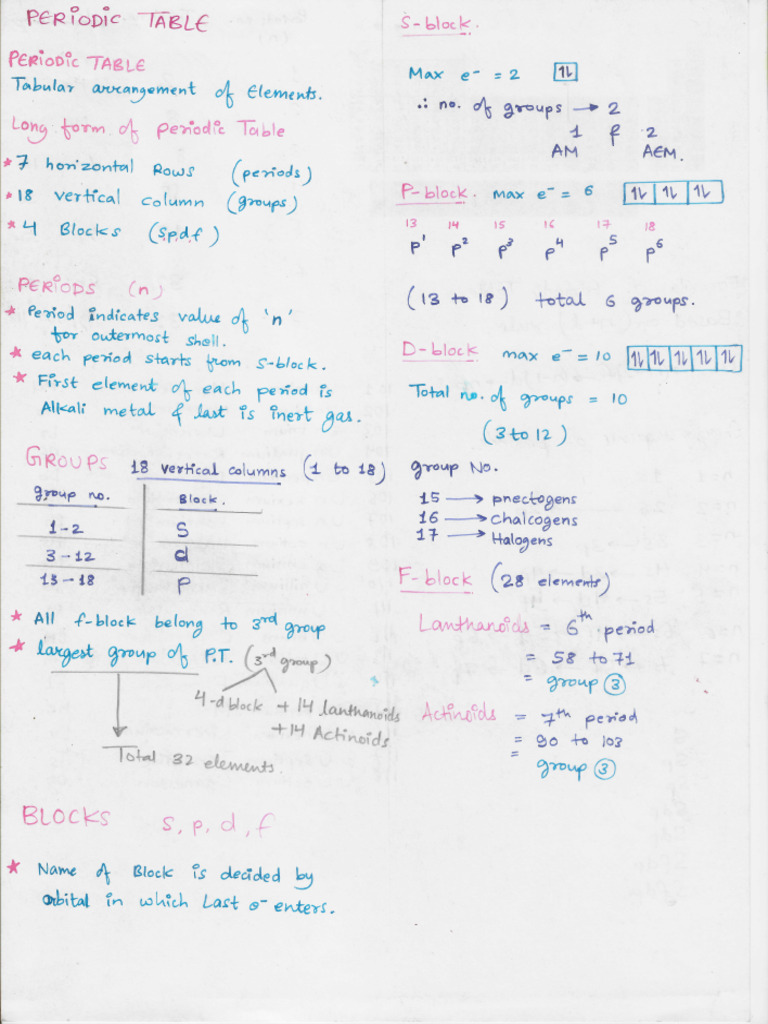 PERIODIC TABLE
PERIODIC TABLE
Tabular arrangement of Elements.
Long form of Periodic Table
* 7 horizontal Rows (periods)
* 18 vertical column (groups)
* 4 Blocks (s,p,d,f)
PERIODS (n)
* Period indicates value of 'n'
for outermost shell.
* each period starts from S-block.
* First element of each period is
Alkali metal & last is inert gas.
GROUPS 18 vertical columns (1 to 18)
group no. Block.
1-2 S
3-12 d
13-18 P
* All f-block belong to 3rd group
* largest group of P.T. (3rd group)
4-d block + 14 lanthanoids
+14 Actinoids
Total 32 elements.
BLOCKS s, p, d, f
* Name of Block is decided by
orbital in which Last e- enters.
S-block.
Max e- = 2 ⥮
∴ no. of groups → 2
1 & 2
AM AEM.
P-block. max e- = 6 ⥮ ⥮ ⥮
13 14 15 16 17 18
p1 p2 p3 p4 p5 p6
(13 to 18) total 6 groups.
D-block max e- = 10 ⥮ ⥮ ⥮ ⥮ ⥮
Total no. of groups = 10
(3 to 12)
group No.
15 → pnectogens
16 → chalcogens
17 → Halogens
F-block (28 elements)
Lanthanoids = 6th period
= 58 to 71
= group ③
Actinoids = 7th period
= 90 to 103
= group ③